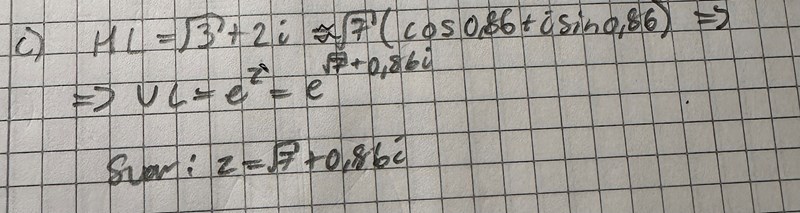 c) HL = √3 + 2i ≈ √7 (cos 0,86 + i sin 0,86) =>
=> VL = e^z = e^(√7 + 0,86i)
Svar: z = √7 + 0,86i